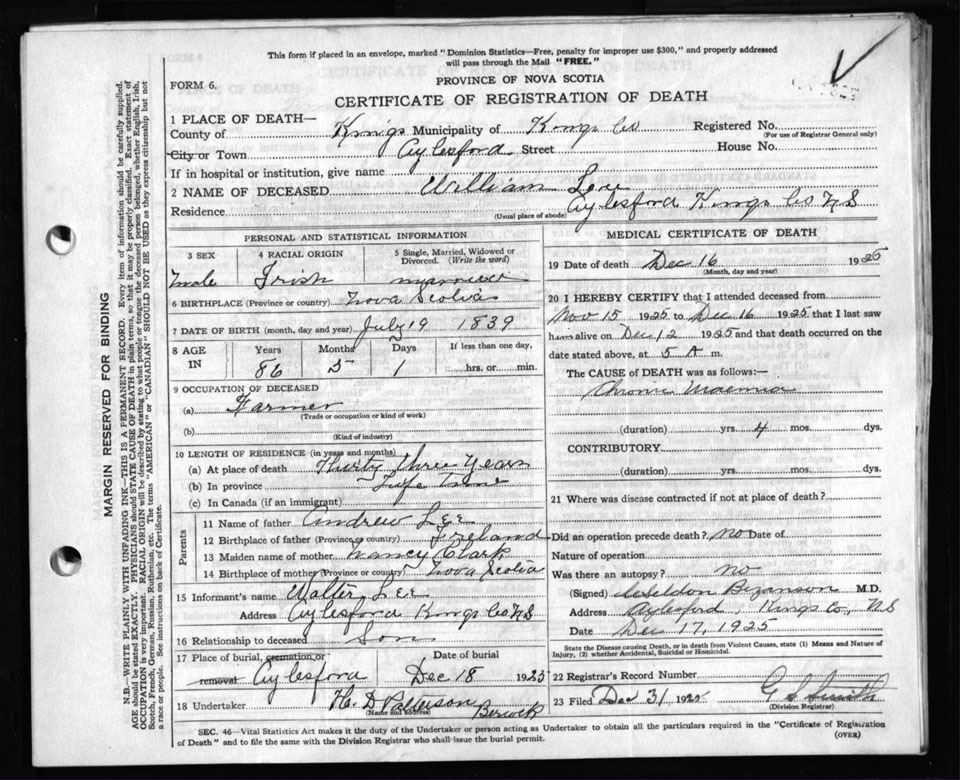 This form if placed in an envelope, marked "Dominion Statistics—Free, penalty for improper use $300," and properly addressed
will pass through the Mail "FREE."
FORM 6.
PROVINCE OF NOVA SCOTIA
CERTIFICATE OF REGISTRATION OF DEATH
1 PLACE OF DEATH—
County of Kings Municipality of Kings Co Registered No.
(For use of Registrar General only)
City or Town Aylesford Street House No.
If in hospital or institution, give name
2 NAME OF DECEASED William Lee
Residence Aylesford Kings Co N S
(Usual place of abode)
PERSONAL AND STATISTICAL INFORMATION
3 SEX 4 RACIAL ORIGIN 5 Single, Married, Widowed or Divorced. (Write the word)
male Irish married
6 BIRTHPLACE (Province or country) Nova Scotia
7 DATE OF BIRTH (month, day and year) July 19 1839
8 AGE IN Years Months Days If less than one day,
86 5 1 hrs. or min.
9 OCCUPATION OF DECEASED
(a) Farmer
(Trade or occupation or kind of work)
(b)
(Kind of industry)
10 LENGTH OF RESIDENCE (in years and months)
(a) At place of death Thirty three Years
(b) In province Life time
(c) In Canada (if an immigrant)
Parents
11 Name of father Andrew Lee
12 Birthplace of father (Province or country) Ireland
13 Maiden name of mother Nancy Clark
14 Birthplace of mother (Province or country) Nova Scotia
15 Informant's name Walter Lee
Address Aylesford Kings Co N S
16 Relationship to deceased Son
17 Place of burial, cremation, or removal Date of burial
Aylesford Dec 18 1925
18 Undertaker H. D Patterson Berwick
(Name and address)
MEDICAL CERTIFICATE OF DEATH
19 Date of death Dec 16 1925
(Month, day and year)
20 I HEREBY CERTIFY that I attended deceased from
Nov 15 1925 to Dec 16 1925 that I last saw
him alive on Dec 12 1925 and that death occurred on the
date stated above, at 5 A m.
The CAUSE of DEATH was as follows:—
Chronic Uraemia
(duration) yrs. 4 mos. dys.
CONTRIBUTORY
(duration) yrs. mos. dys.
21 Where was disease contracted if not at place of death?
Did an operation precede death? No Date of
Nature of operation
Was there an autopsy? no
(Signed) Bezanson M.D.
Address Aylesford, Kings Co, N S
Date Dec 17, 1925
State the Disease causing Death, or in death from Violent Causes, state (1) Means and Nature of
Injury, (2) whether Accidental, Suicidal or Homicidal.
22 Registrar's Record Number
23 Filed Dec 31 1925 G S Smith
(Division Registrar)
SEC. 46—Vital Statistics Act makes it the duty of the Undertaker or person acting as Undertaker to obtain all the particulars required in the "Certificate of Registration
of Death" and to file the same with the Division Registrar who shall issue the burial permit.
(OVER)
MARGIN RESERVED FOR BINDING
N.B.—WRITE PLAINLY WITH UNFADING INK—THIS IS A PERMANENT RECORD. Every item of information should be carefully supplied.
AGE should be stated EXACTLY. PHYSICIANS should STATE CAUSE OF DEATH in plain terms, so that it may be properly classified. Exact statement of
OCCUPATION is very important. RACIAL ORIGIN will be described by stating to what people or tongue the deceased person belonged, whether English, Irish,
Scotch, French, German, Russian, Ruthenian, etc. The terms "AMERICAN" or "CANADIAN" SHOULD NOT BE USED as they express citizenship but not
a race or people. See instructions on back of Certificate.